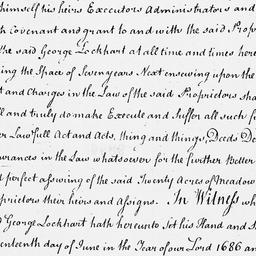 himself his heirs Executors Administrators and
Covenant and grant to and with the said Prop
the said George Lockhart at all time and times here
ing the Space of Seven years Next ensewing upon the
t and Charges in the Law of the said Proprietors sha
ll and truly do make Execute and Suffer all such f
Law full Act and Acts, thing and things, Deeds De
urances in the Law whatsoever for the further better
d perfect assuring of the said Twenty Acres of Meadow
prietors their heirs and Assigns. In Witness wh
d George Lockhart hath hereunto Set his Hand and S
enteenth day of June in the Year of our Lord 1686 an